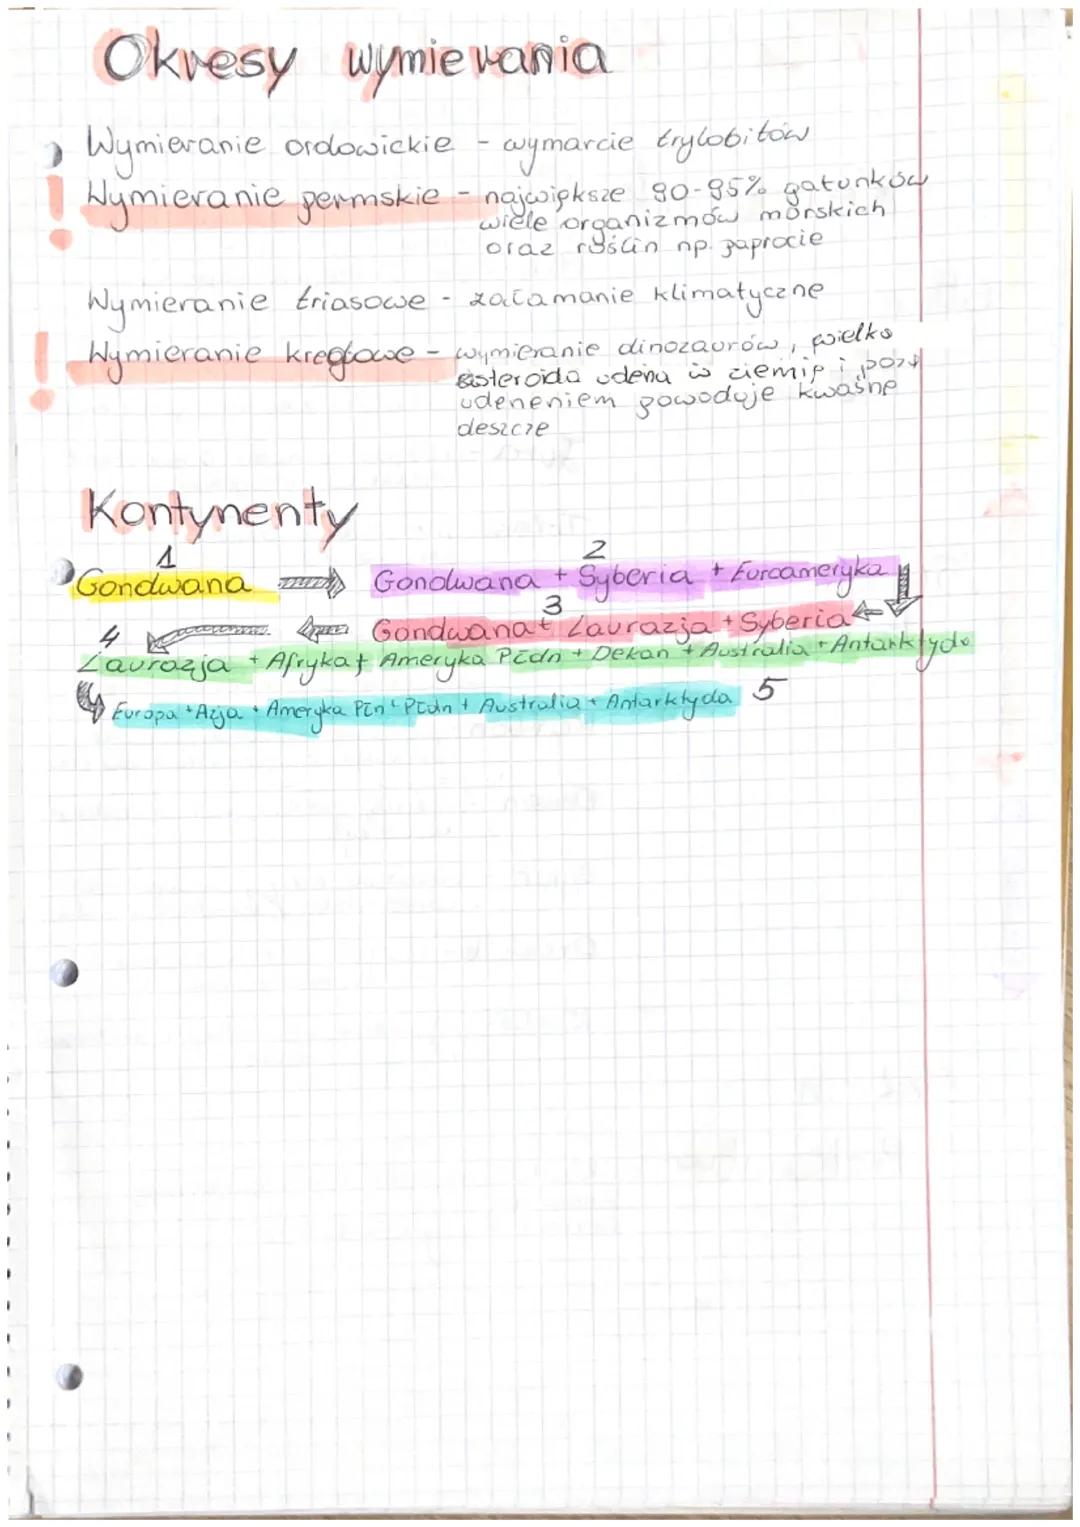 Okresy wymierania
Wymieranie ordowickie - wymarcie trylobitów
Wymieranie permskie - największe 90-95% gatunków
wiele organizmów morskich
oraz roślin np. paprocie
Wymieranie triasowe - załamanie klimatyczne
Wymieranie kredowe - wymieranie dinozaurów, wielka
asteroida udeża w ziemię i pozd
udeneniem powoduje kwaśne
deszcze
Kontynenty
1
Gondwana
2
Gondwana + Syberia + Euroameryka
3
Gondwana + Laurazja + Syberia
4
Laurazja + Afryka + Ameryka Płdn + Dekan + Australia + Antarktyda
Europa + Azja + Ameryka Płn + Płdn + Australia + Antarktyda 5